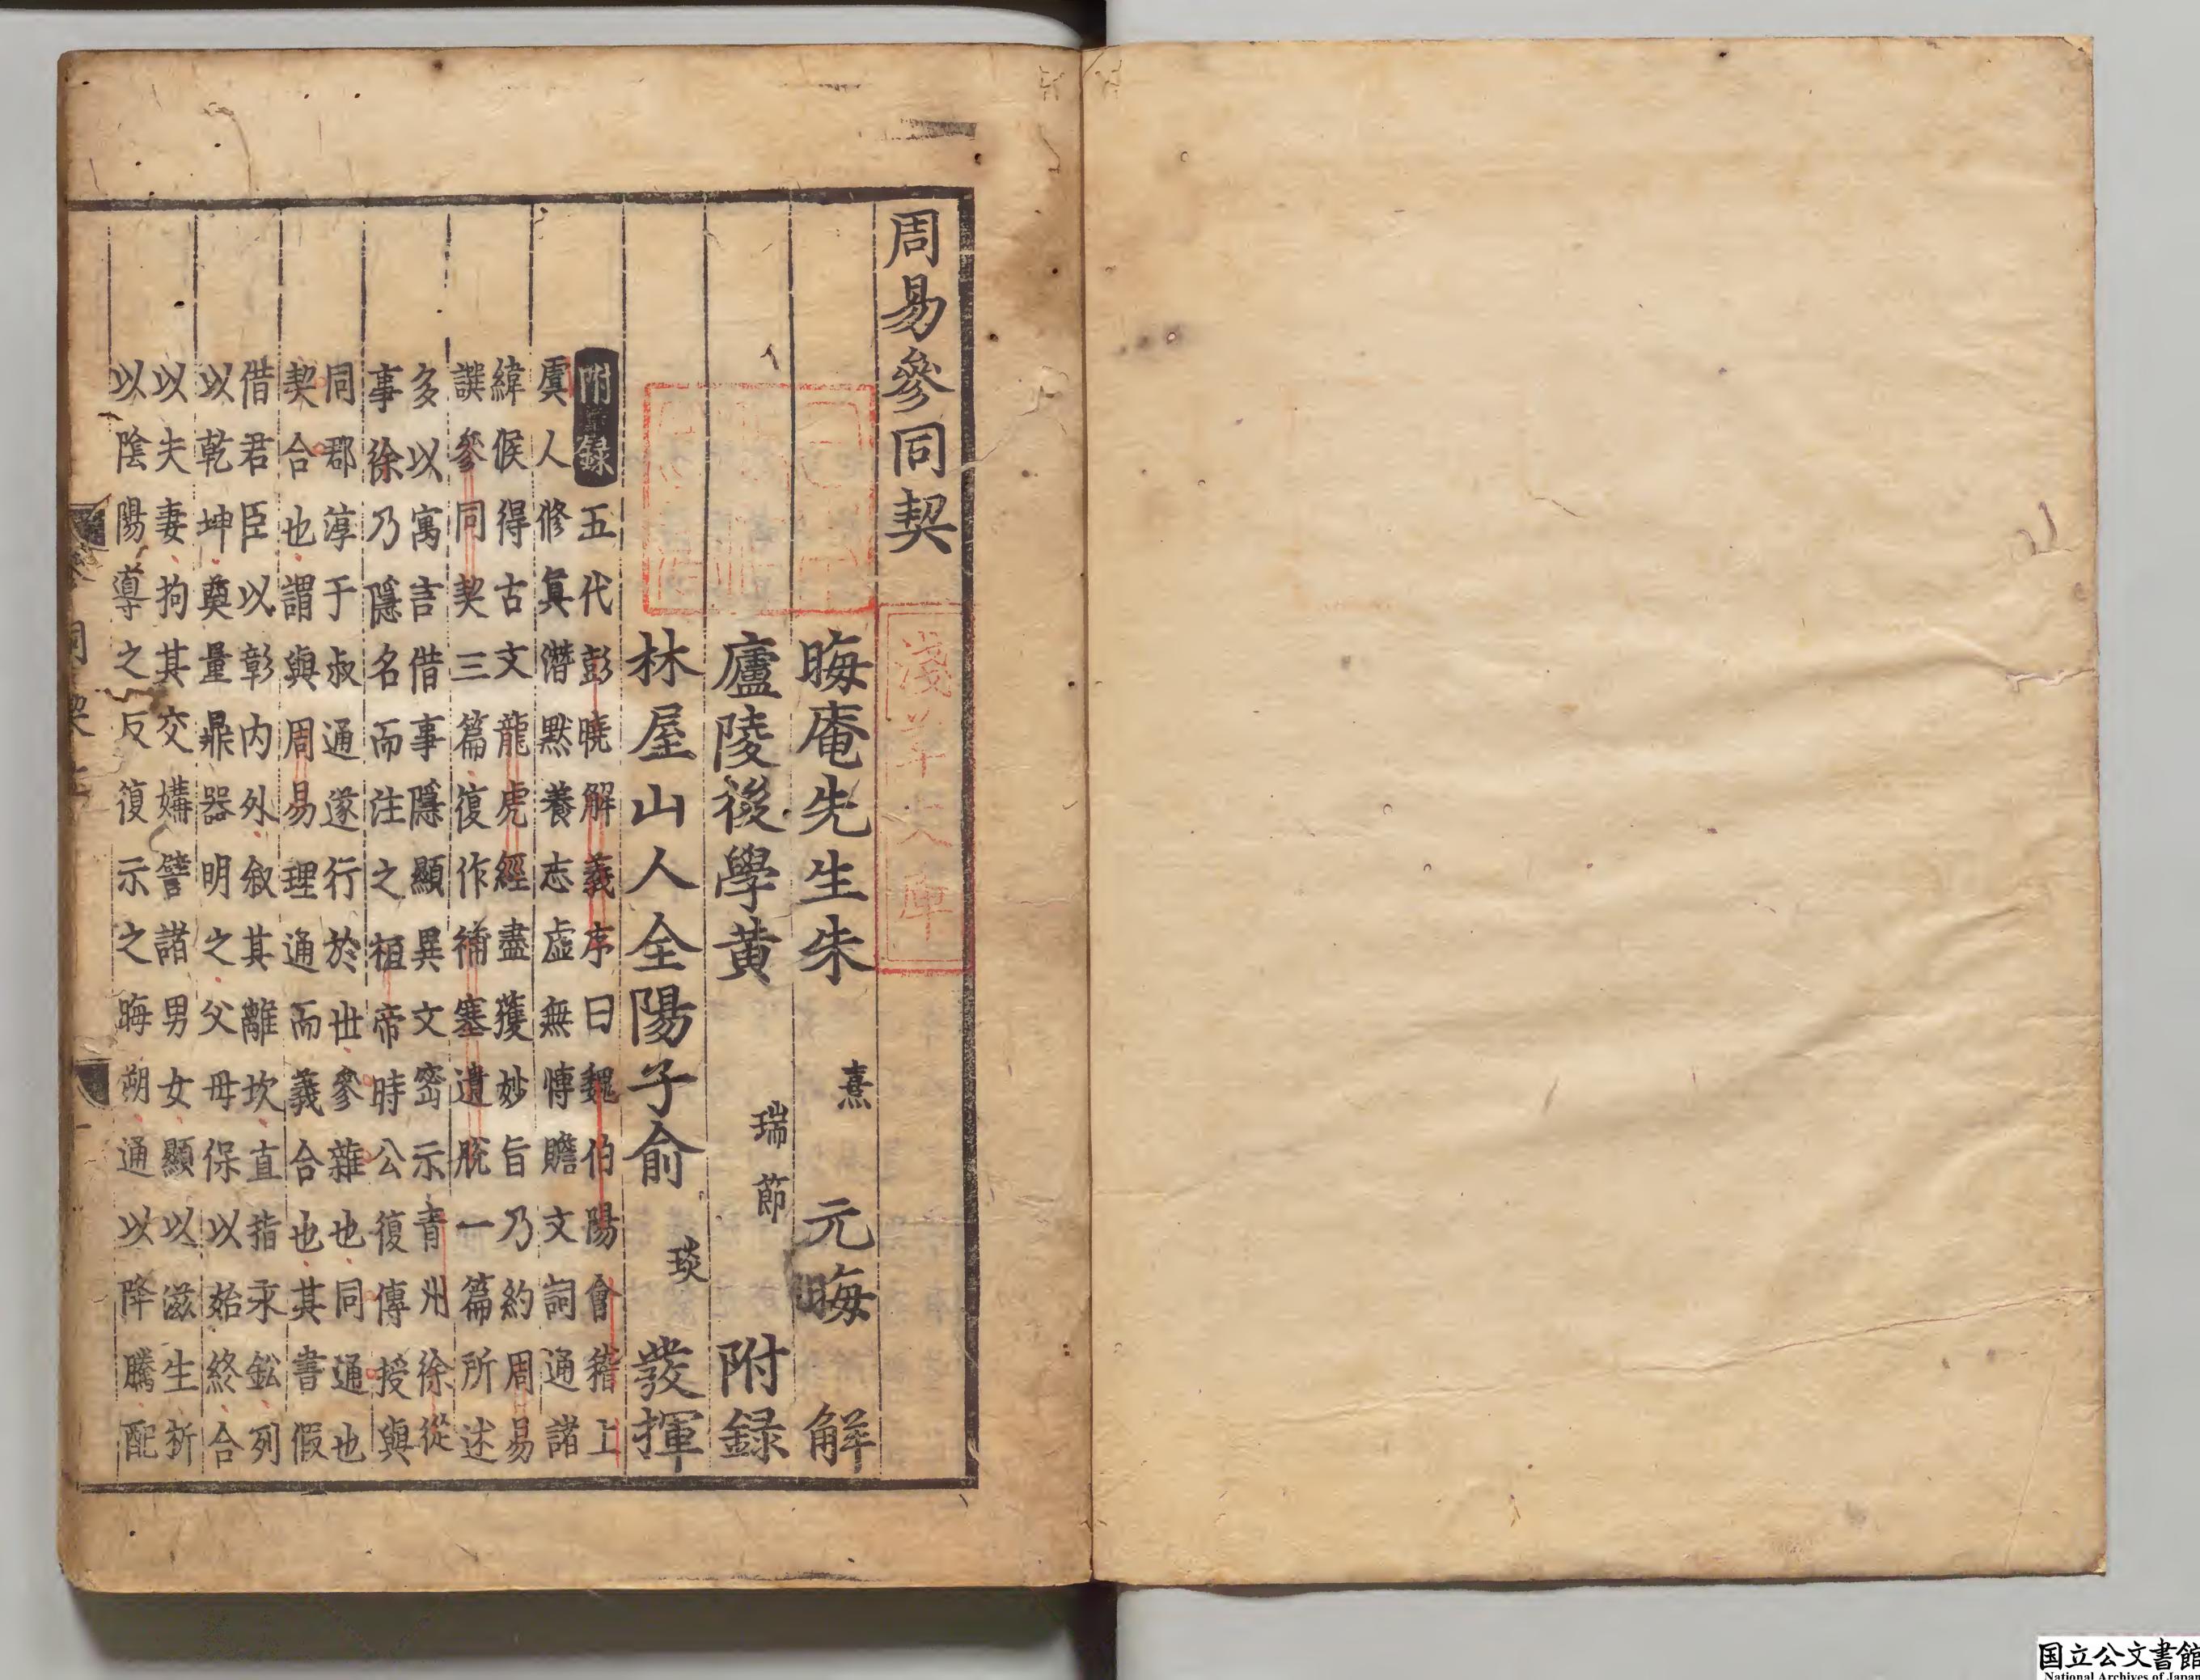 周易參同契
晦庵先生朱熹元晦解
廬陵後學黃瑞節附録
林屋山人全陽子俞琰發揮
附録五代彭曉解義序曰魏伯陽會稽上
虞人修真潛默養志虛無博贍文詞通諸
緯候得古文龍虎經盡獲妙旨乃約周易
譔參同契三篇復作補塞遺脫一篇所述
多以寓言借事隱顯異文密示青州徐從
事徐乃隱名而注之桓帝時公復傳授與
同郡淳于叔通遂行於世參雜也同通也
契合也謂與周易理通而義合也其書假
借君臣以彰內外敘其離坎直指汞鈆列
以乾坤奠量鼎器明之父母保以始終合
以夫妻拘其交媾譬諸男女顯以滋生析
以陰陽導之反復示之晦朔通以降騰配
同契上
淺草文庫
国立公文書館
National Archives of Japan